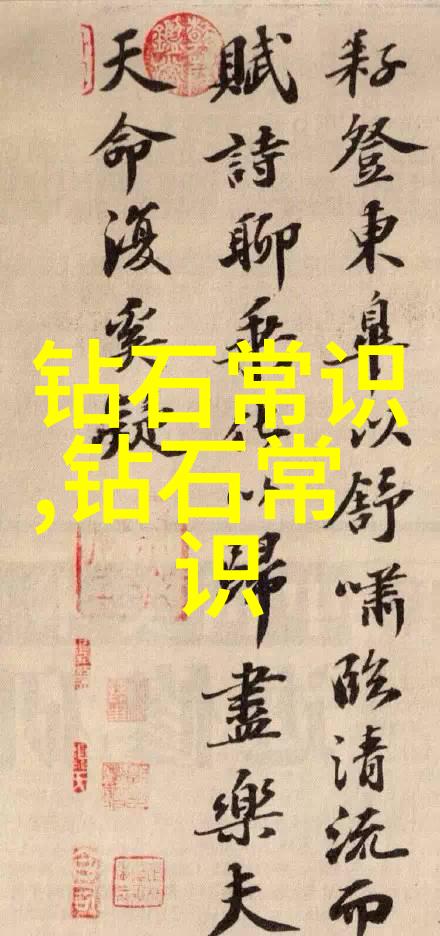 耔登東皋以舒嘯臨清流而
賦詩聊乘化以歸盡樂夫
天命復奚疑
钻石常识
,钻石常
识